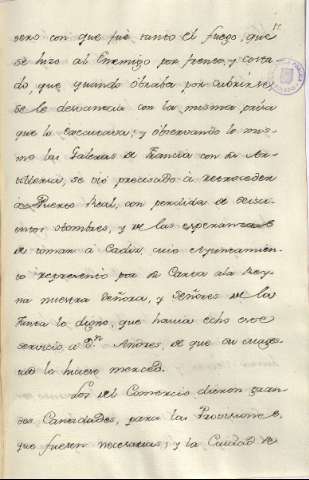 sero con que fué tanto el fuego, que
se hizo al Enemigo por frente, y costa-
do, que quando obraba por cubrirse,
se le desvanecia con la misma prisa
que la executava; y observando lo mis-
mo las Galeras de Francia con su Ar-
tilleria, se vió precisado á retroceder
á Puerto Real, con perdida de
hombres, y de las esperanzas
de tomar á Cadiz, cuio Ayuntamien-
to representó por su Carta ala Rey-
na nuestra Señora, y Señores de la
Junta lo digno, que havia echo este
servicio, á Dn. Andres, de que su mages-
tad le hiciese merced.
Los del Comercio dieron gran-
des Cantidades, para las Provisiones,
que fuesen necesarias; y la Ciudad de